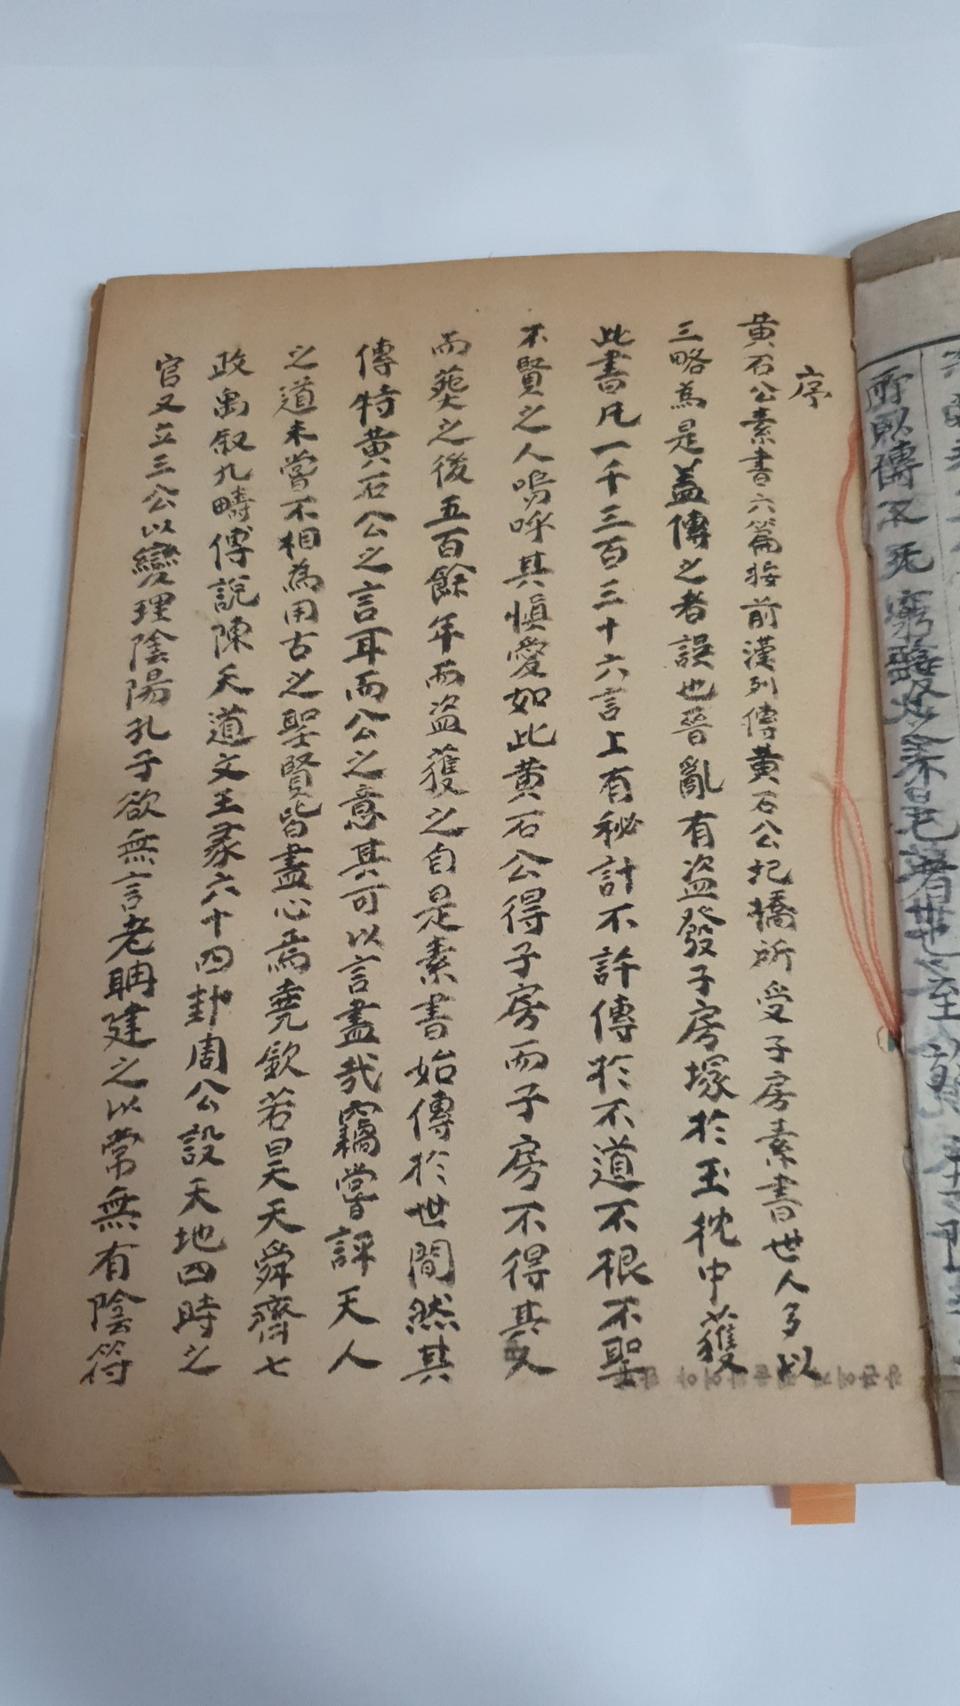 序
黄石公素書六篇按前漢列傳黄石公圯橋所受子房素書世人多以
三略為是盖傳之者誤也晉亂有盜發子房塚於玉枕中獲
此書凡一千三百三十六言上有秘計不許傳於不道不根不聖
不賢之人嗚呼其慎愛如此黄石公得子房而子房不得其人
而葬之後五百餘年而盜獲之自是素書始傳於世間然其
傳特黄石公之言耳而公之意其可以言盡哉竊嘗評天人
之道未嘗不相為用古之聖賢皆盡心焉堯欽若昊天舜齊七
政禹叙九疇傅說陳天道文王彖六十四卦周公設天地四時之
官又立三公以變理陰陽孔子欲無言老聃建之以常無有陰符